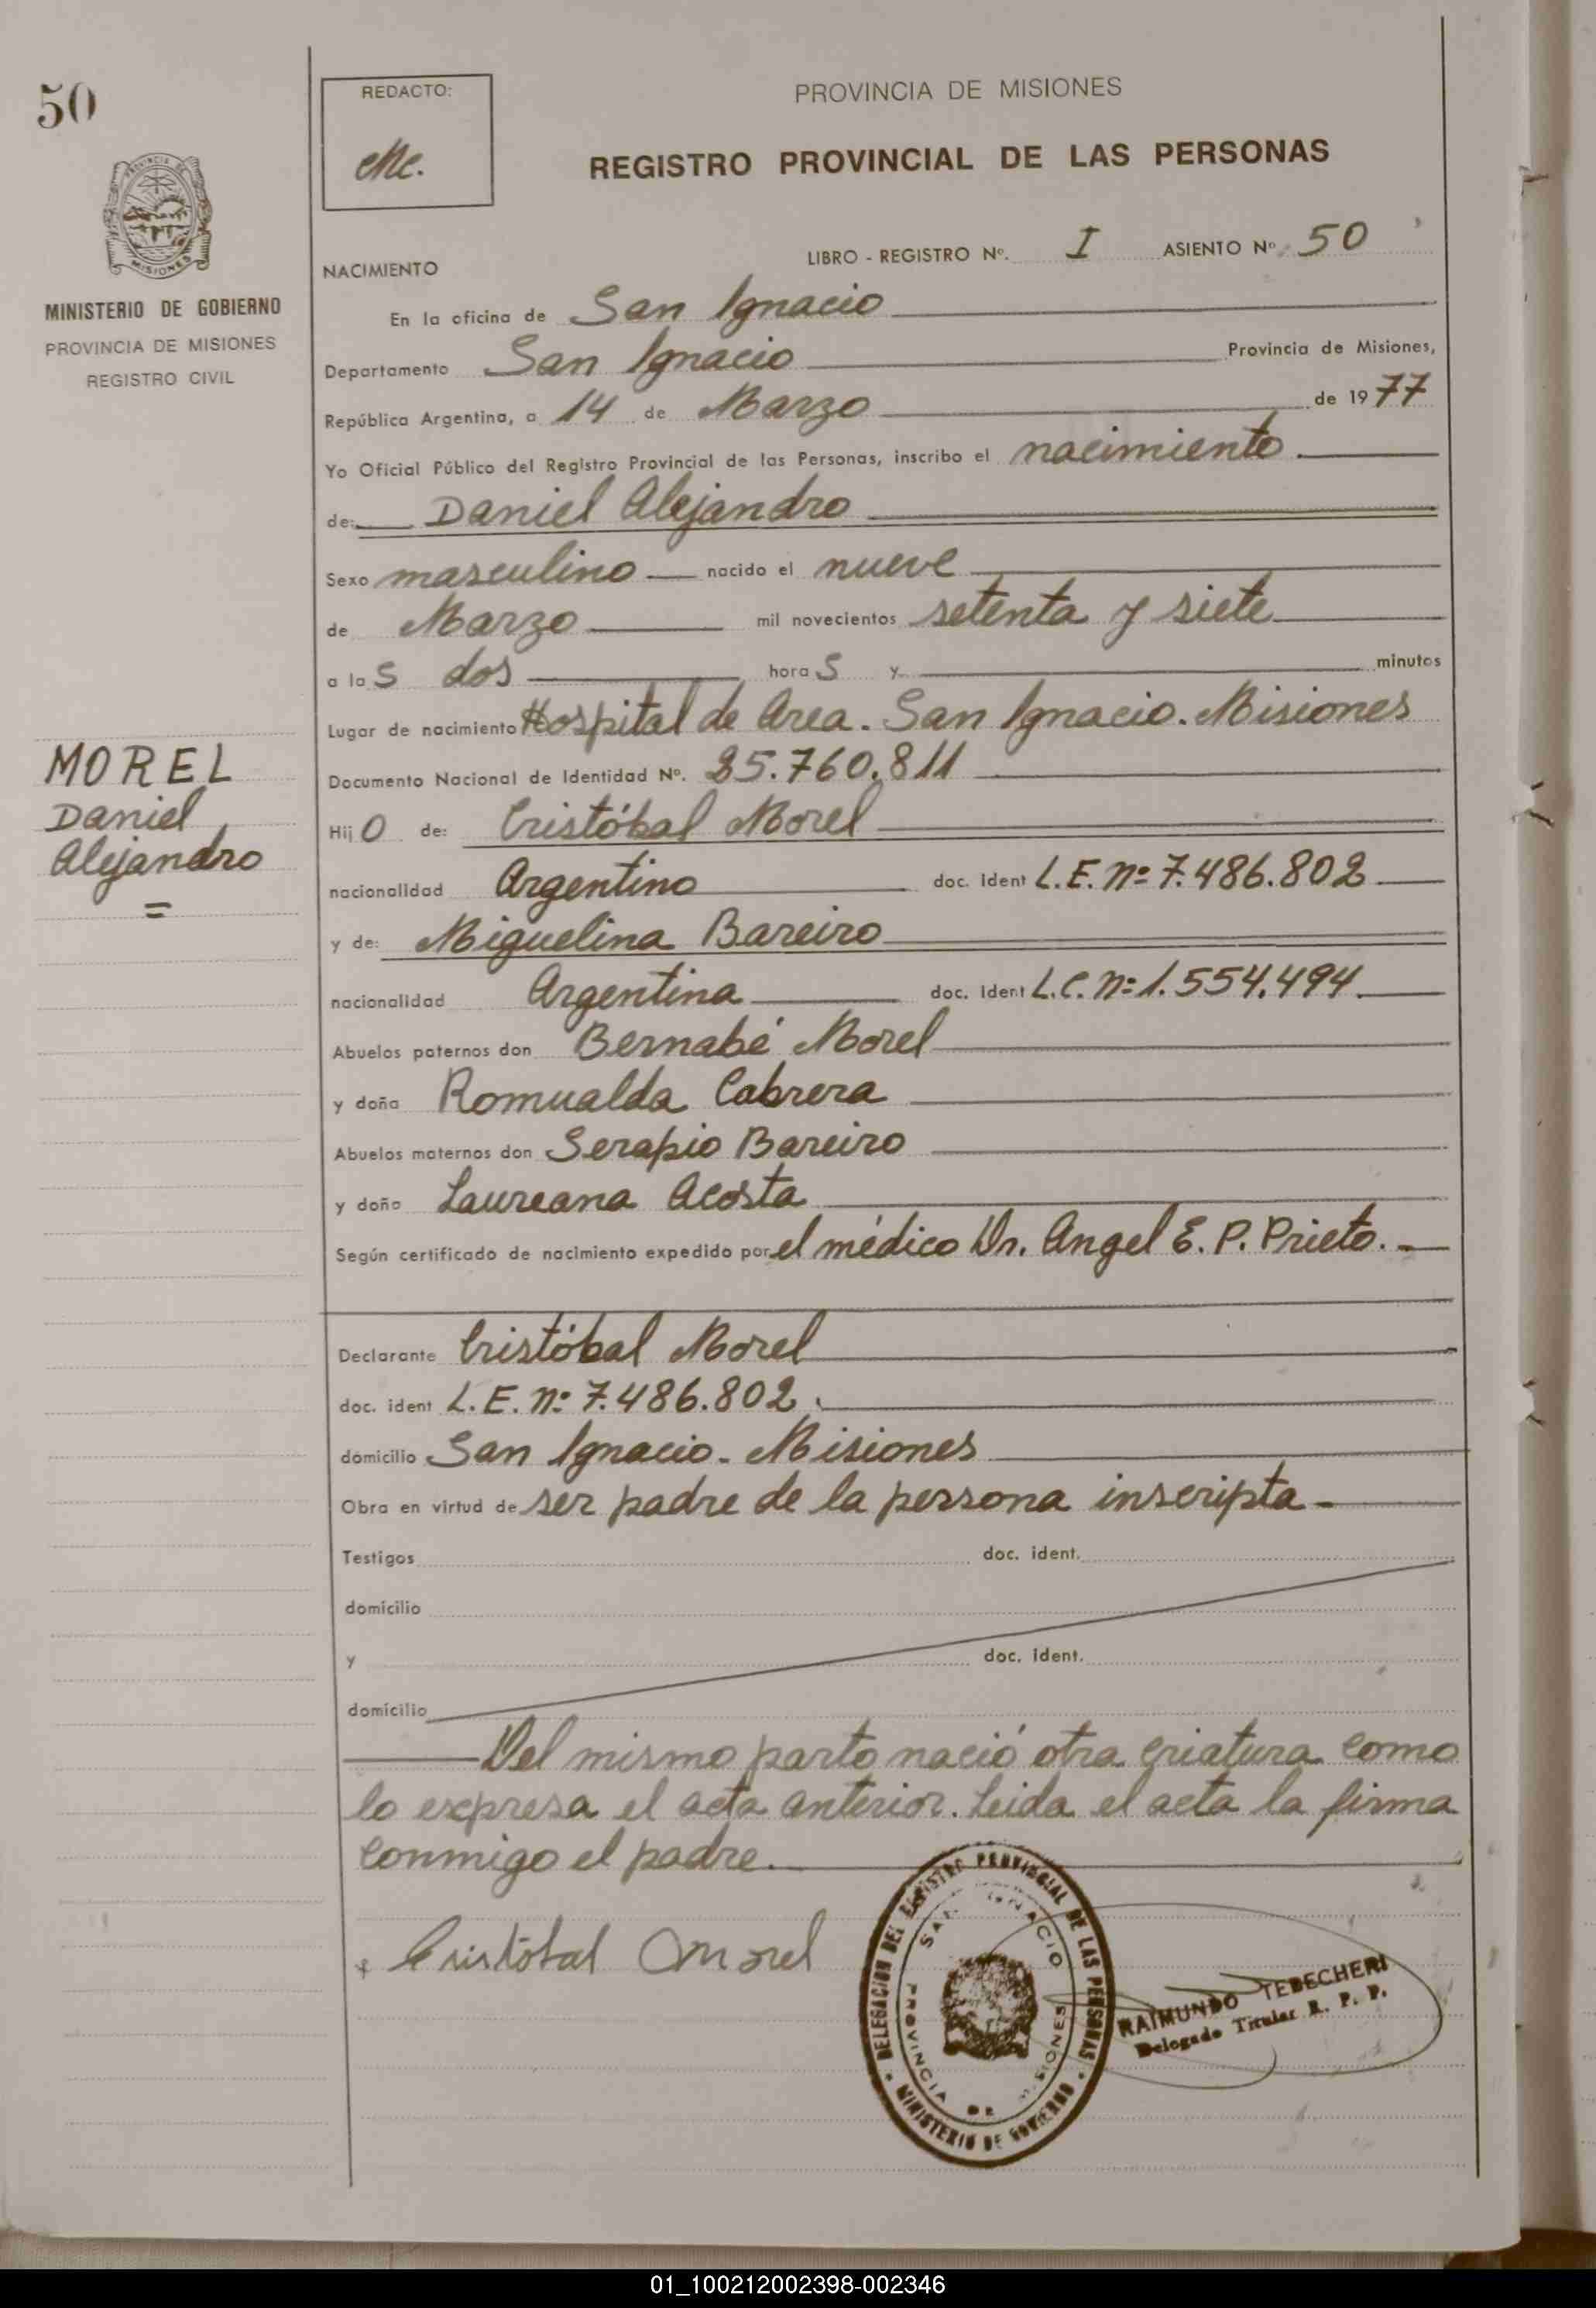 50
PROVINCIA DE
MISIONES
MINISTERIO DE GOBIERNO
PROVINCIA DE MISIONES
REGISTRO CIVIL
MOREL
Daniel
Alejandro
=
REDACTO:
Mc.
PROVINCIA DE MISIONES
REGISTRO PROVINCIAL DE LAS PERSONAS
LIBRO - REGISTRO Nº. I ASIENTO Nº. 50
NACIMIENTO
En la oficina de San Ignacio
Departamento San Ignacio Provincia de Misiones,
República Argentina, a 14 de Marzo de 1977
Yo Oficial Público del Registro Provincial de las Personas, inscribo el nacimiento.
de: Daniel Alejandro
Sexo masculino nacido el nueve
de Marzo mil novecientos setenta y siete
a las dos horas y minutos
Lugar de nacimiento Hospital de Area. San Ignacio. Misiones
Documento Nacional de Identidad Nº. 25.760.811
Hijo de: Cristóbal Morel
nacionalidad Argentino doc. Ident L.E. nº 7.486.802
y de: Miguelina Bareiro
nacionalidad Argentina doc. Ident L.C. nº 1.554.494
Abuelos paternos don Bernabé Morel
y doña Romualda Cabrera
Abuelos maternos don Serapio Bareiro
y doña Laureana Acosta
Según certificado de nacimiento expedido por el médico Dr. Angel E. P. Prieto. -
Declarante Cristóbal Morel
doc. ident L.E. nº 7.486.802.
domicilio San Ignacio - Misiones
Obra en virtud de ser padre de la persona inscripta -
Testigos doc. ident.
domicilio
y doc. ident.
domicilio
Del mismo parto nació otra criatura como
lo expresa el acta anterior. Leida el acta la firma
conmigo el padre.
+ Cristobal Morel
DELEGACION DEL REGISTRO PROVINCIAL DE LAS PERSONAS
SAN IGNACIO
PROVINCIA DE MISIONES
MINISTERIO DE GOBIERNO
RAIMUNDO TEBECHERI
Delegado Titular R. P. P.
01_100212002398-002346